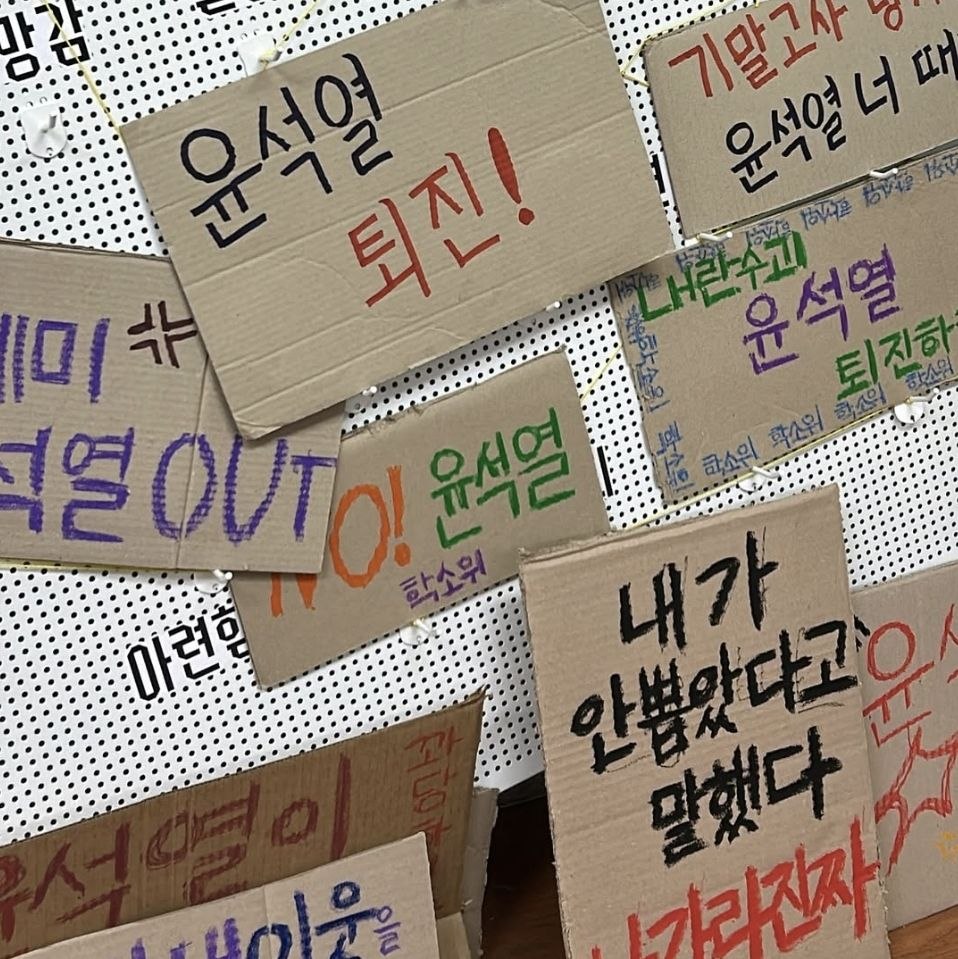 망감
윤석열
퇴진!
기말고사
윤석열 너 때
내란수괴
윤석열
퇴진하
학소위 학소위 학소위 학소위
석열 OUT
NO! 윤석열
학소위
아련함
내가
안뽑았다고
말했다
나가라진짜
윤석열이
이웃을